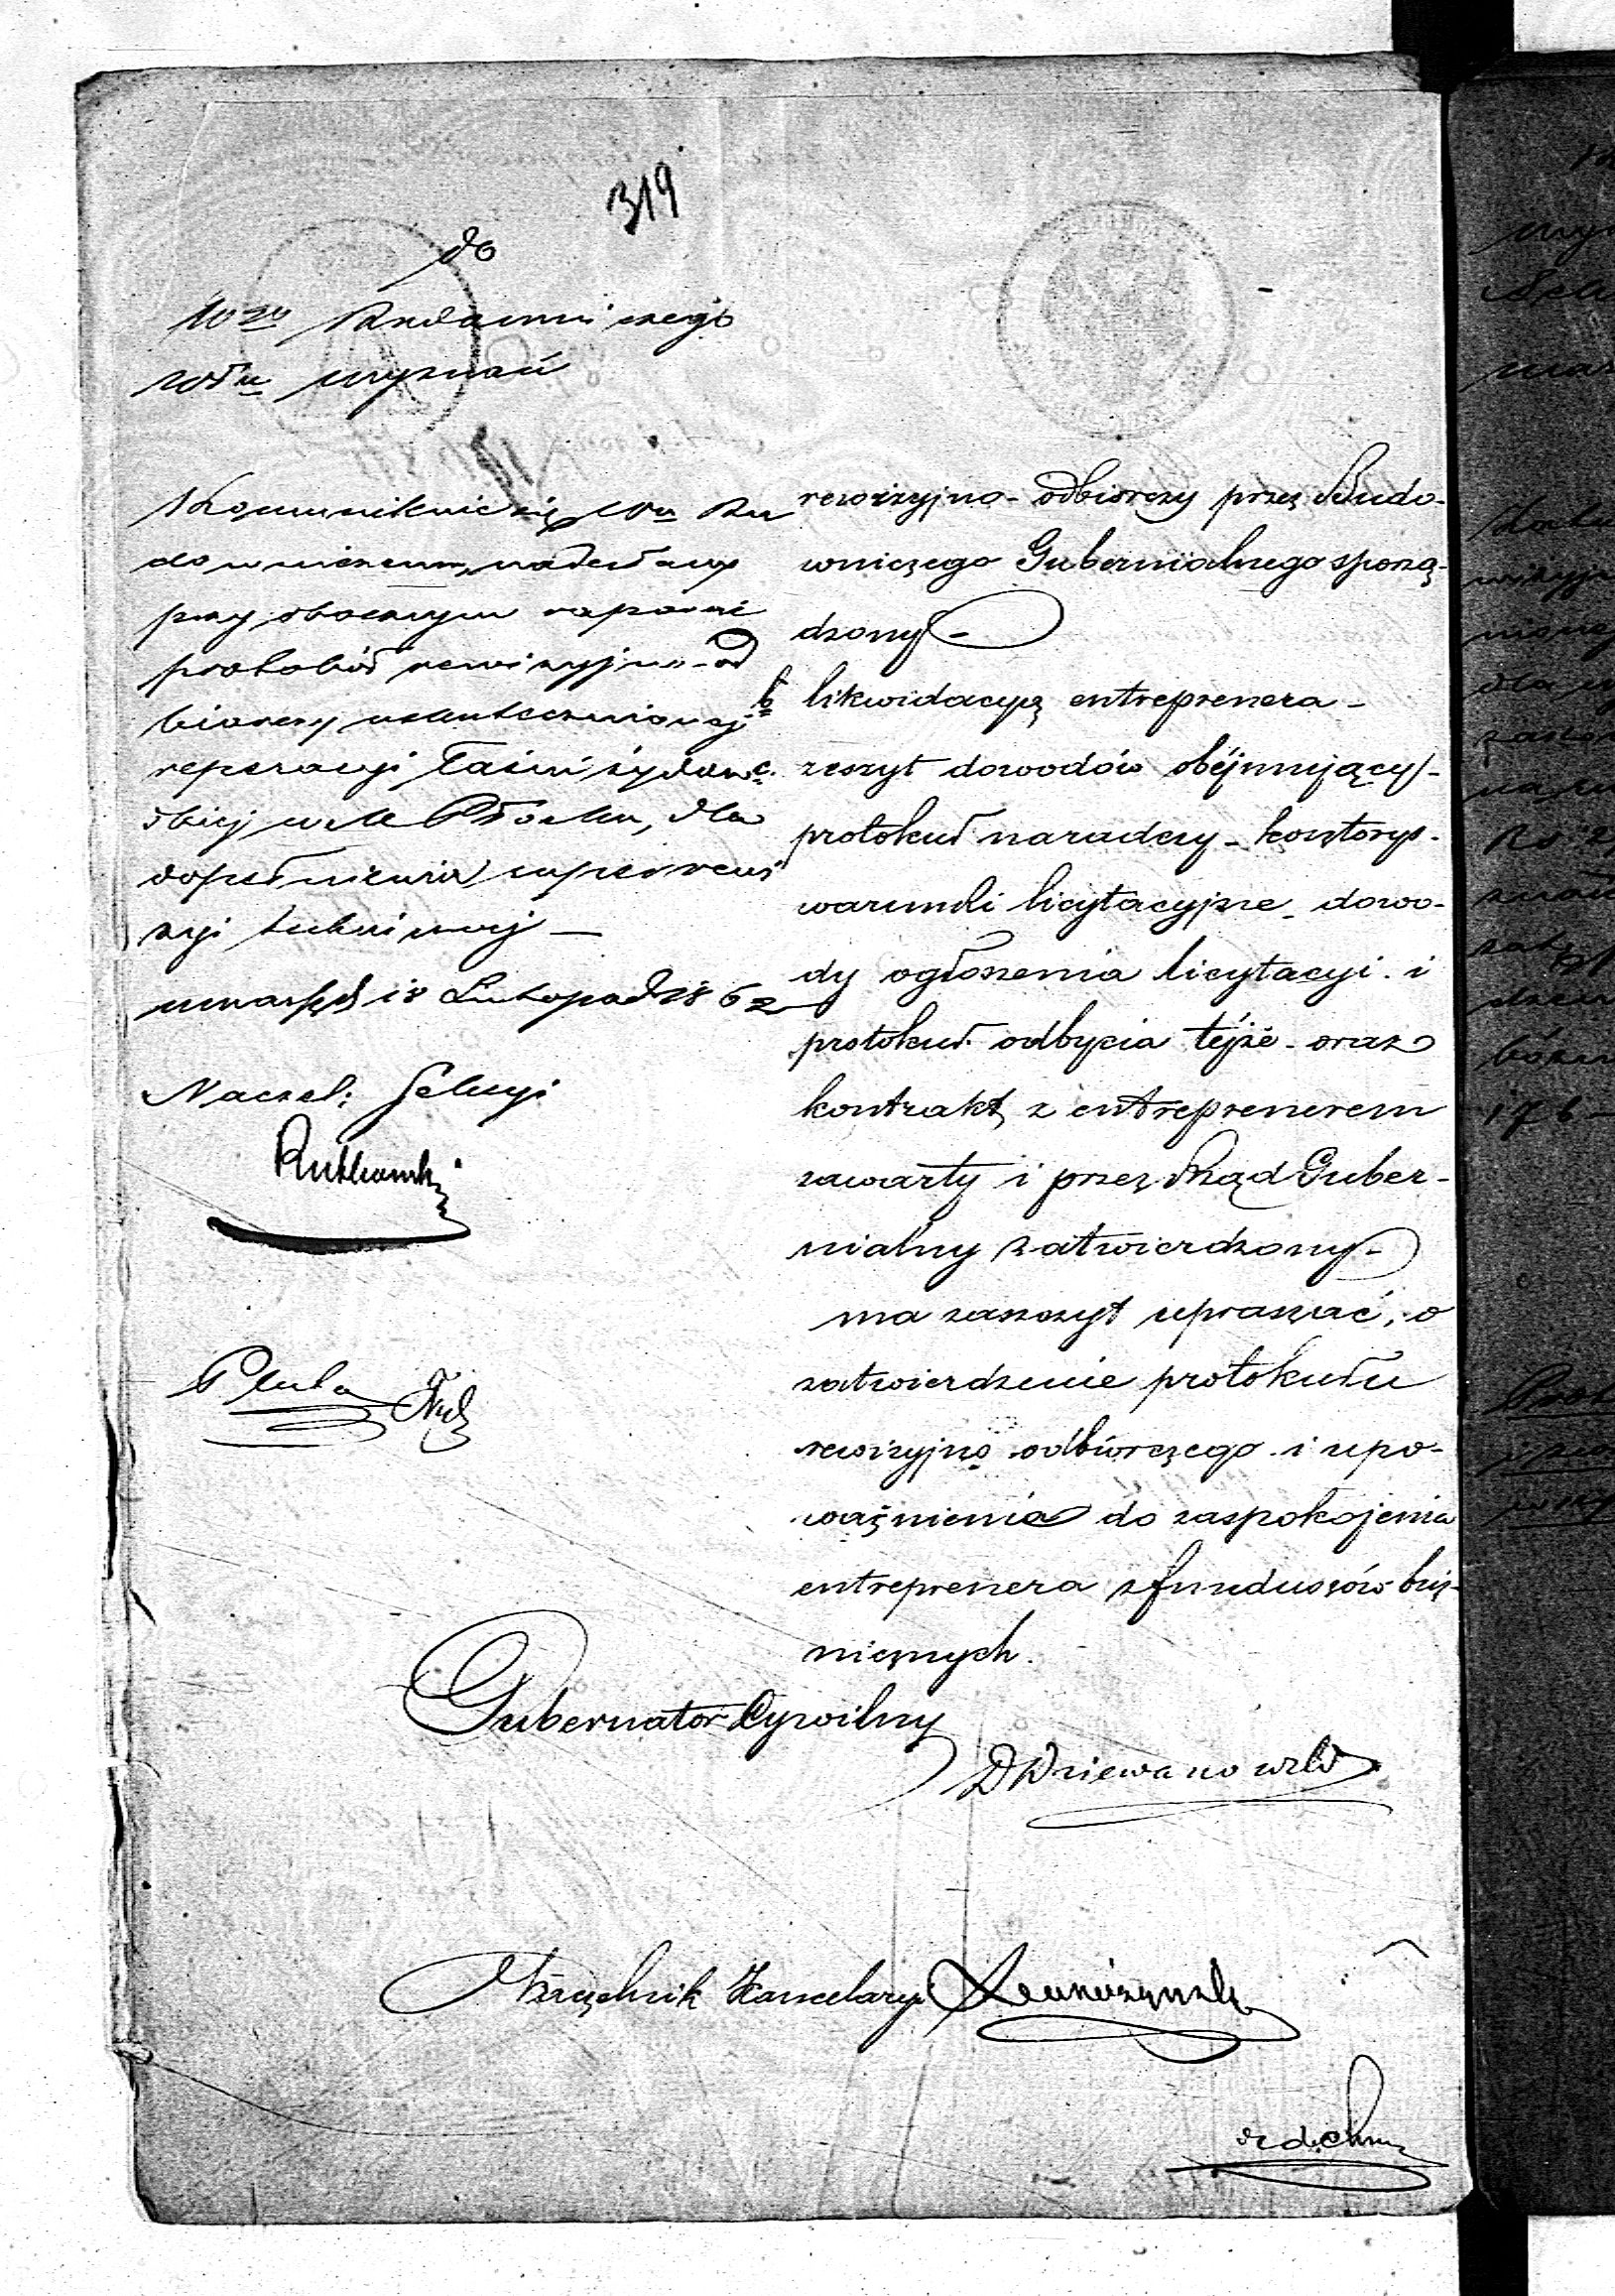 319
do
Wgo Budowniczego
Wdłu wyznań
Komunikuje się Wu Bu
downiczemu, nadesłany
przy obocznym raporcie
protokół rewizyjno-od
biorczy uskutecznionej
reperacyi Łaźni żydow
skiej w M Płocku, dla
dopełnienia superrewi
zyi technicznej —
Listopad 1862
Naczel: Sekcyi
Rutkowski
rewizyjno-odbiorczy przez Budo-
wniczego Gubernialnego sporzą-
dzony-
b likwidacyą entreprenera-
c. zeszyt dowodów obéjmujący-
protokuł naradczy-kosztorys-
warunki licytacyjne-dowo-
dy ogłoszenia licytacyi i
protokuł odbycia téjże-oraz
kontrakt z entreprenerem
zawarty i przez Rząd Guber-
nialny zatwierdzony-
ma zaszczyt upraszać, o
zatwierdzenie protokułu
rewizyjno odbiorczego i upo-
ważnienia do zaspokojenia
entreprenera z funduszów bóż-
nicznych.
Gubernator Cywilny
Naczelnik Kancelaryi